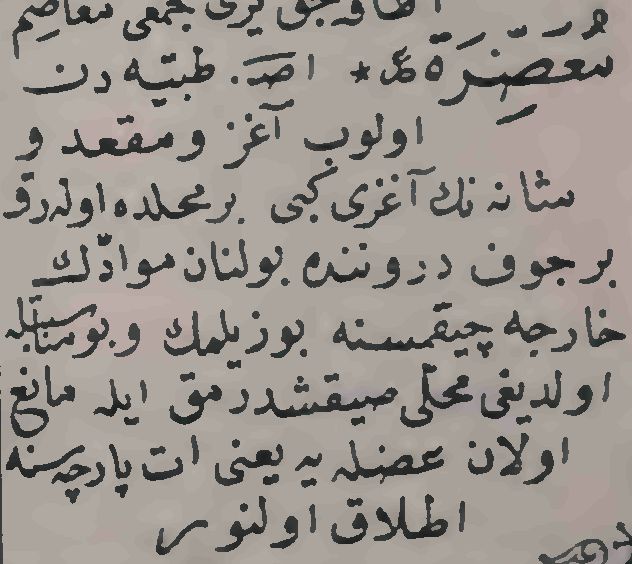 جمعى معاصر
مُعَصِّرَة ☆ اصـ. طبيه دن
اولوب آغز ومقعد و
مثانه نك آغزى كبى بر محلده اوله رق
بر جوف دروننده بولنان موادّك
خارجه چيقمسنه بوزيلمك وبو مناسبتله
اولديغى محلّى صيقشدرمق ايله مانع
اولان عضله يه يعنى ات پارچه سنه
اطلاق اولنور